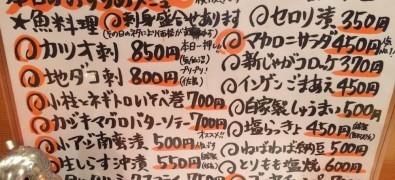 本日のおすすめメニュー
★魚料理 刺身盛合せあります
カツオ刺 850円
地ダコ刺 800円
小柱とネギトロいそべ巻 700円
カジキマグロバターソテー 700円
オススメ!!
小アジ南蛮漬 500円
生しらす沖漬 550円
セロリ漬 350円
マカロニサラダ 450円
新じゃがコロッケ 370円
インゲンごまあえ 450円
自家製しゅうまい 500円
塩らっきょ 450円
ねばねば納豆 500円
とりもも塩焼 600円